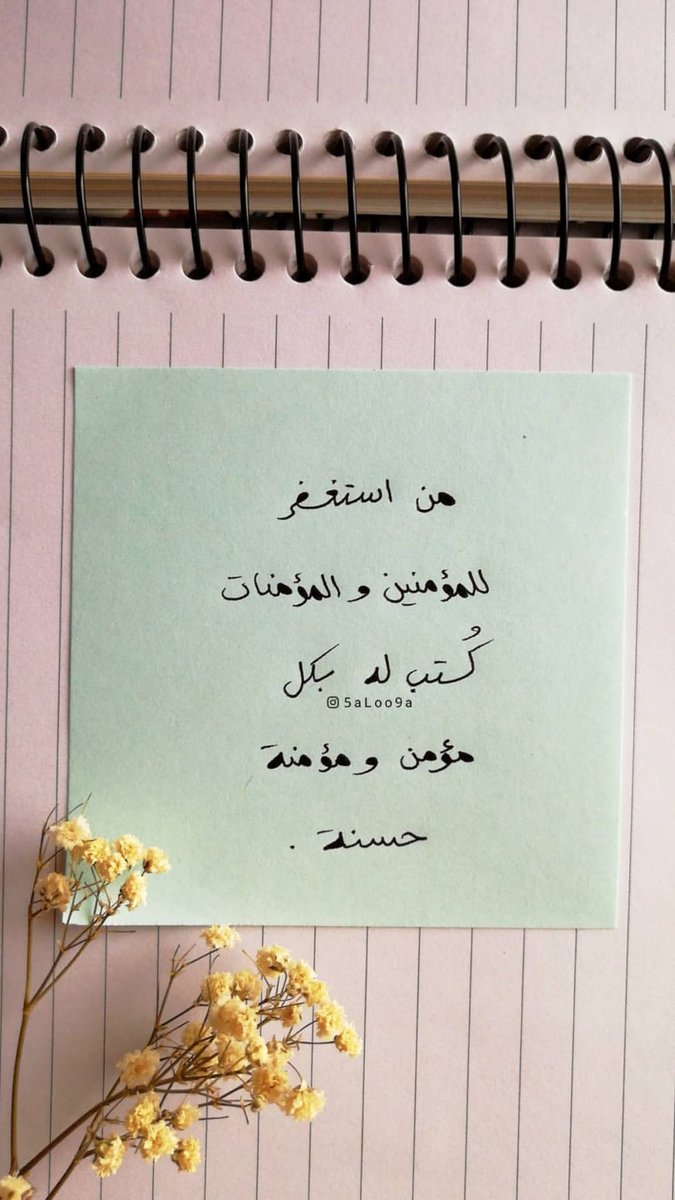 من استغفر
للمؤمنين و المؤمنات
كُتب له بكل
5aLoo9a
مؤمن و مؤمنة
حسنة .